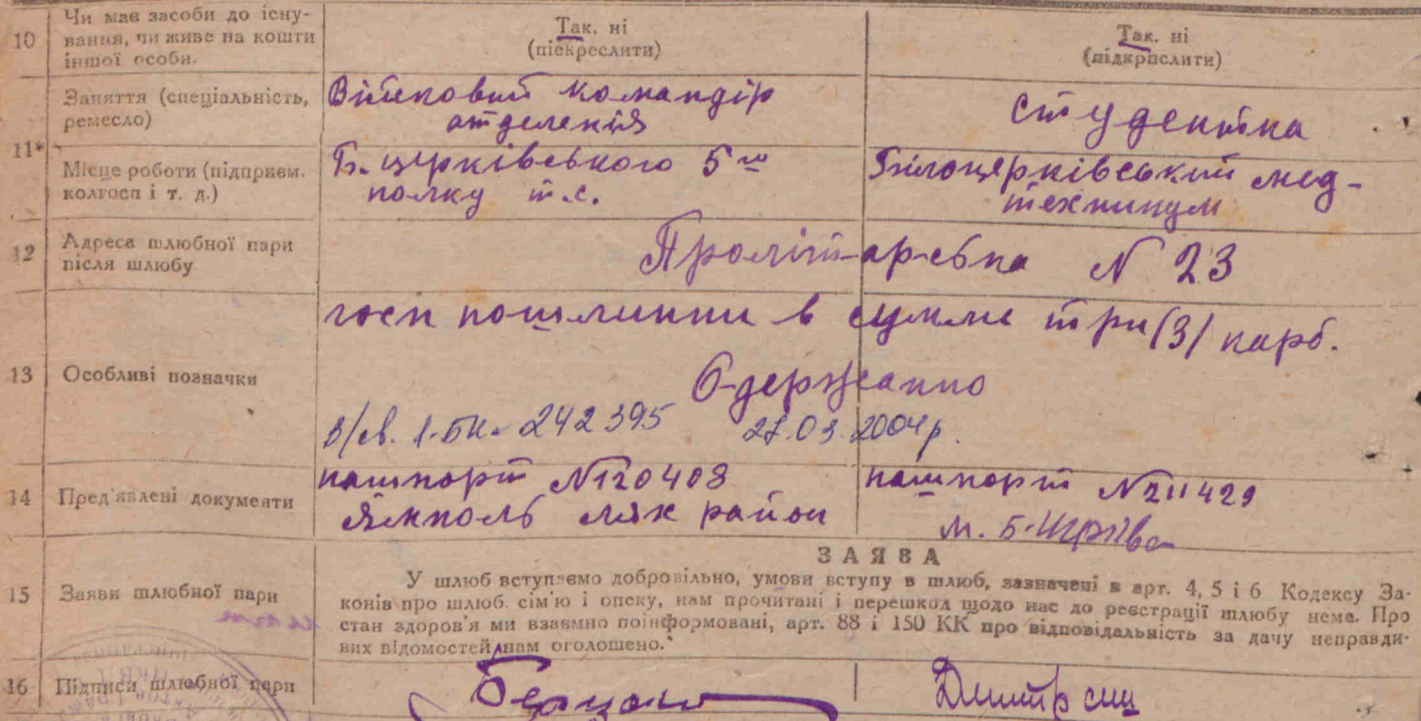 10 Чи має засоби до існування, чи живе на кошти іншої особи.
Так, ні
(піскреслити)
Так, ні
(підкріслити)
Заняття (спеціальність, ремесло)
Військовий командір
отделенія
студентка
11* Місце роботи (підприєм. колгосп і т. д.)
Б. церківського 5го
полку т.с.
Білоцерківський мед-
техникум
12 Адреса шлюбної пари після шлюбу
Пролітарська N 23
13 Особливі позначки
госп пошлинни в сумме три (3) карб.
Одержанно
в/св. 1-БК 242395 27.03.2004р.
14 Пред'явлені документи
пашпорт N120408
Ямполь район
пашпорт N211429
м. Б-Церква
15 Заяви шлюбної пари
ЗАЯВА
У шлюб вступаємо добровільно, умови вступу в шлюб, зазначені в арт. 4, 5 і 6 Кодексу За-
конів про шлюб. сім'ю і опеку, нам прочитані і перешкод щодо нас до реєстрації шлюбу нема. Про
стан здоров'я ми взаємно поінформовані, арт. 88 і 150 КК про відповідальність за дачу неправди-
вих відомостей нам оголошено.
16 Підписи шлюбної пари